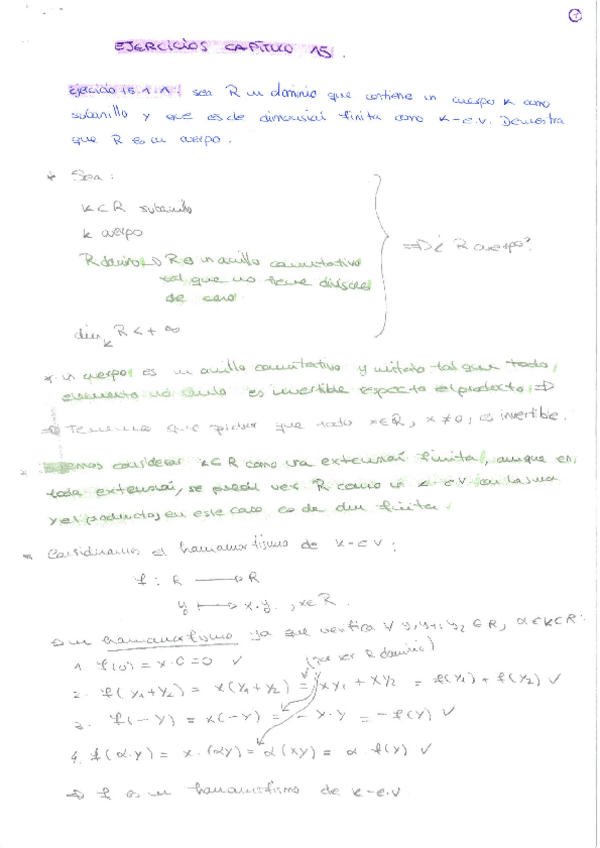 1
EJERCICIOS CAPÍTULO 15.
Ejercicio 15.1.1: sea R un dominio que contiene un cuerpo K como
subanillo y que es de dimensión finita como K-e.v. Demuestra
que R es un cuerpo.
* Sea:
K⊂R subanillo
K cuerpo
R dominio → R es un anillo conmutativo
tal que no tiene divisores
de cero
dim_K R < +∞
⇒ ¿R cuerpo?
* un cuerpo es un anillo conmutativo y unitario tal que todo
elemento no nulo es invertible respecto el producto ⇒
⇒ Tenemos que probar que todo x∈R, x≠0, es invertible.
considerar K⊂R como una extensión finita, aunque en
toda extensión, se puede ver R como un K-eV con la suma
y el producto, en este caso es de dim finita.
* Consideramos el homomorfismo de K-eV:
f: R ⟶ R
y ⟼ x·y, x∈R.
un homomorfismo ya que verifica ∀ y, y₁, y₂ ∈ R, α∈K⊂R:
(por ser R dominio)
1. f(0) = x·0 = 0 ✓
2. f(y₁+y₂) = x(y₁+y₂) = xy₁ + xy₂ = f(y₁) + f(y₂) ✓
3. f(-y) = x(-y) = -x·y = -f(y) ✓
4. f(α·y) = x·(αy) = α(xy) = α f(y) ✓
⇒ f es un homomorfismo de K-e.V